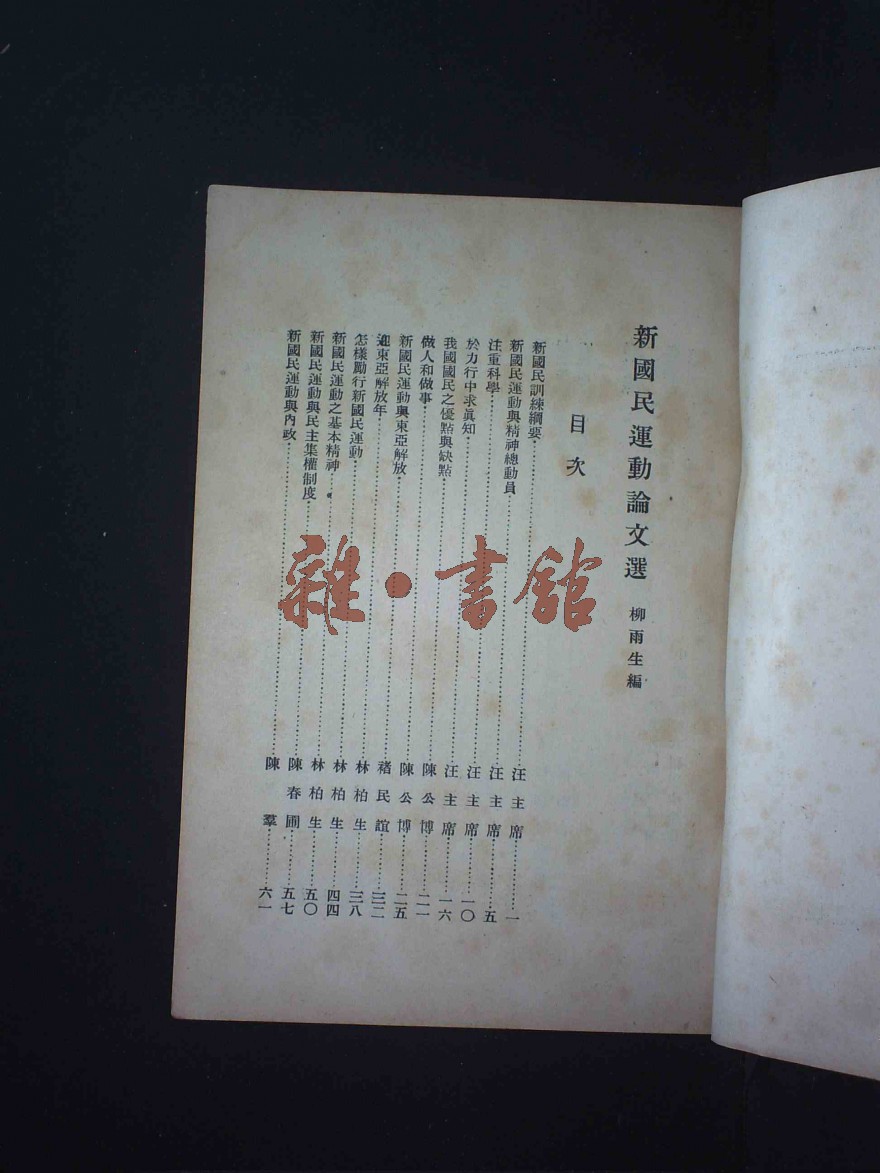 新國民運動論文選 柳雨生編
目次
新國民訓練綱要……汪主席……一
新國民運動與精神總動員……汪主席……五
注重科學……汪主席……一〇
於力行中求眞知……汪主席……一六
我國國民之優點與缺點……陳公博……二一
做人和做事……陳公博……二五
新國民運動與東亞解放……褚民誼……三二
迎東亞解放年……林柏生……三八
怎樣勵行新國民運動……林柏生……四四
新國民運動之基本精神……林柏生……五〇
新國民運動與民主集權制度……陳春圃……五七
新國民運動與內政……陳羣……六一
雜·書館